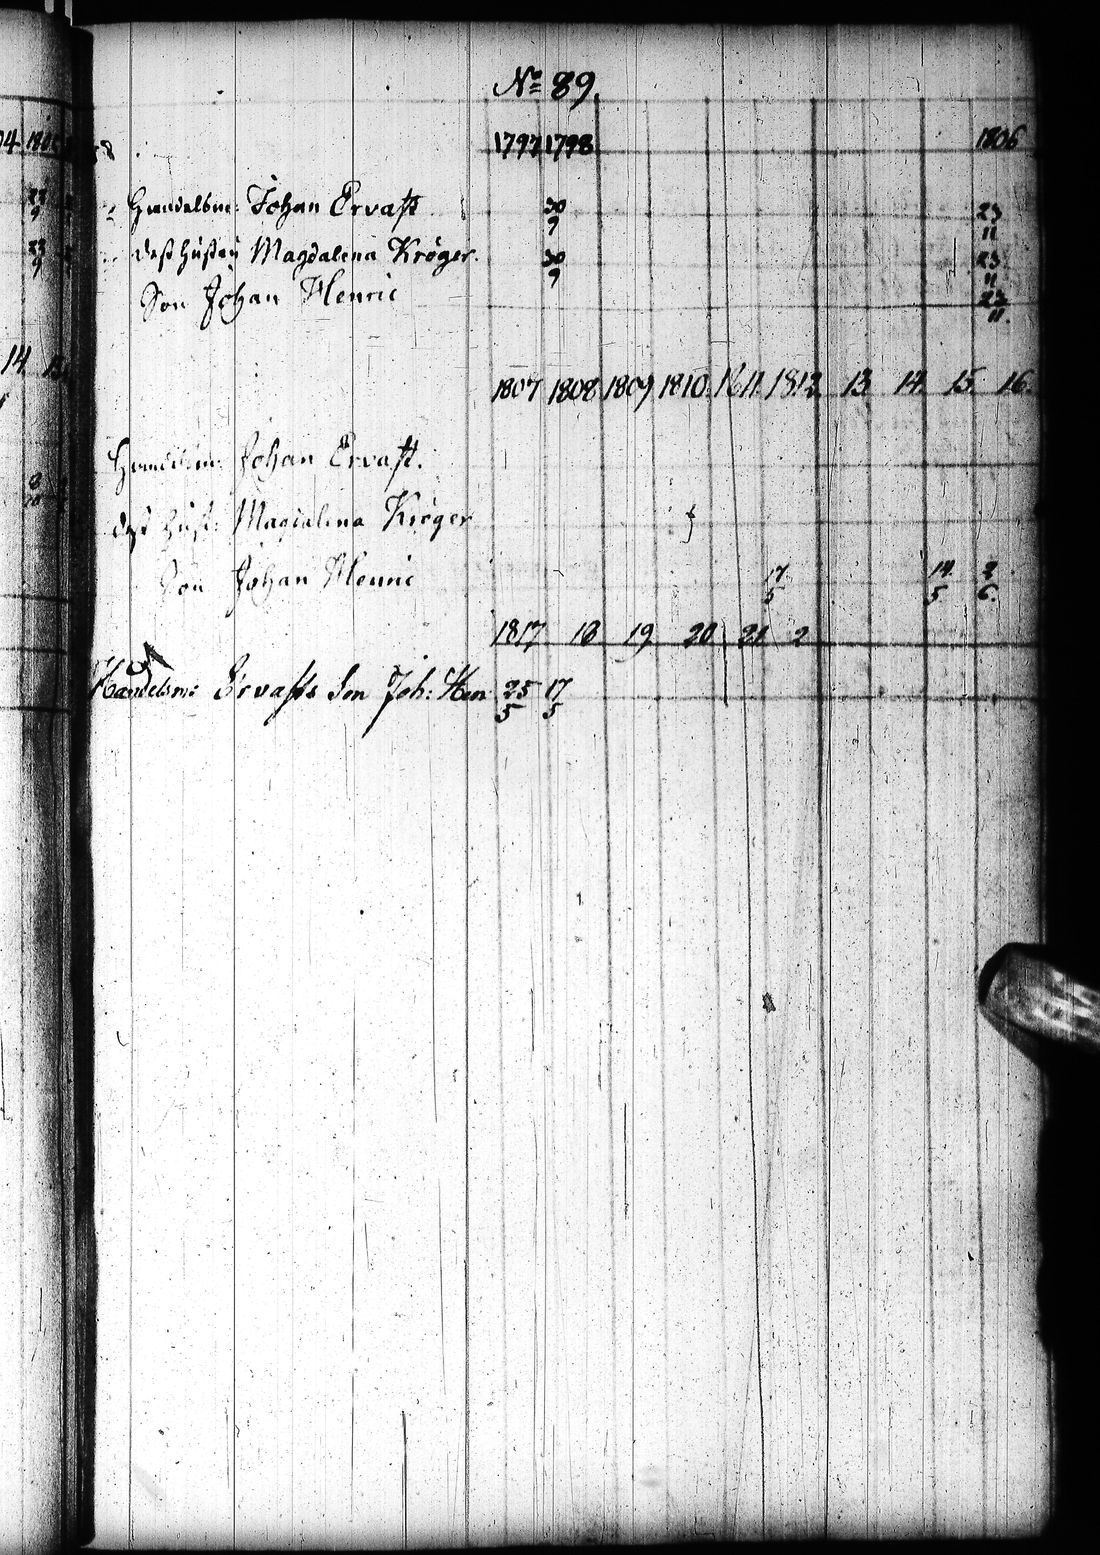 No 89.
04 1805 1797 1798 1806
Handelsm: Johan Ervast 30 23
9 11
dess hustru Magdalena Kröger. 30 23
9 11
Son Johan Henric 23
11.
14 1807 1808 1809 1810. 1811. 1812 13 14. 15. 16.
Handelsm: Johan Ervast.
dess hust: Magdalena Kröger
Son Johan Henric 17 14 2
5 5 6.
1817 18 19 20 21 2
Handelsm: Ervasts Son Joh: Hen 25 17
5 5